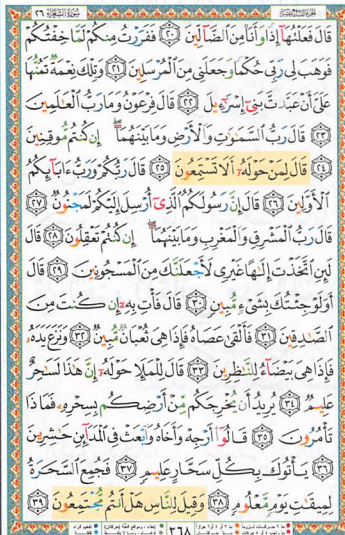 الجزء التاسع عشر سورة الشعراء ٢٦
قَالَ فَعَلْتُهَا إِذًا وَأَنَا مِنَ الضَّالِّينَ ٢٠ فَفَرَرْتُ مِنكُمْ لَمَّا خِفْتُكُمْ
فَوَهَبَ لِي رَبِّي حُكْمًا وَجَعَلَنِي مِنَ الْمُرْسَلِينَ ٢١ وَتِلْكَ نِعْمَةٌ تَمُنُّهَا
عَلَيَّ أَنْ عَبَّدتَّ بَنِي إِسْرَٰٓءِيلَ ٢٢ قَالَ فِرْعَوْنُ وَمَا رَبُّ الْعَٰلَمِينَ
٢٣ قَالَ رَبُّ السَّمَٰوَٰتِ وَالْأَرْضِ وَمَا بَيْنَهُمَا إِن كُنتُم مُّوقِنِينَ
٢٤ قَالَ لِمَنْ حَوْلَهُۥٓ أَلَا تَسْتَمِعُونَ ٢٥ قَالَ رَبُّكُمْ وَرَبُّ ءَابَآئِكُمُ
الْأَوَّلِينَ ٢٦ قَالَ إِنَّ رَسُولَكُمُ الَّذِيٓ أُرْسِلَ إِلَيْكُمْ لَمَجْنُونٌ ٢٧
قَالَ رَبُّ الْمَشْرِقِ وَالْمَغْرِبِ وَمَا بَيْنَهُمَا إِن كُنتُمْ تَعْقِلُونَ ٢٨ قَالَ
لَئِنِ اتَّخَذْتَ إِلَٰهًا غَيْرِي لَأَجْعَلَنَّكَ مِنَ الْمَسْجُونِينَ ٢٩ قَالَ
أَوَلَوْ جِئْتُكَ بِشَيْءٍ مُّبِينٍ ٣٠ قَالَ فَأْتِ بِهِۦٓ إِن كُنتَ مِنَ
الصَّٰدِقِينَ ٣١ فَأَلْقَىٰ عَصَاهُ فَإِذَا هِيَ ثُعْبَانٌ مُّبِينٌ ٣٢ وَنَزَعَ يَدَهُۥ
فَإِذَا هِيَ بَيْضَآءُ لِلنَّٰظِرِينَ ٣٣ قَالَ لِلْمَلَإِ حَوْلَهُۥٓ إِنَّ هَٰذَا لَسَٰحِرٌ
عَلِيمٌ ٣٤ يُرِيدُ أَن يُخْرِجَكُم مِّنْ أَرْضِكُم بِسِحْرِهِۦ فَمَاذَا
تَأْمُرُونَ ٣٥ قَالُوٓا أَرْجِهْ وَأَخَاهُ وَابْعَثْ فِي الْمَدَآئِنِ حَٰشِرِينَ
٣٦ يَأْتُوكَ بِكُلِّ سَحَّارٍ عَلِيمٍ ٣٧ فَجُمِعَ السَّحَرَةُ
لِمِيقَٰتِ يَوْمٍ مَّعْلُومٍ ٣٨ وَقِيلَ لِلنَّاسِ هَلْ أَنتُم مُّجْتَمِعُونَ ٣٩
٣٦٨